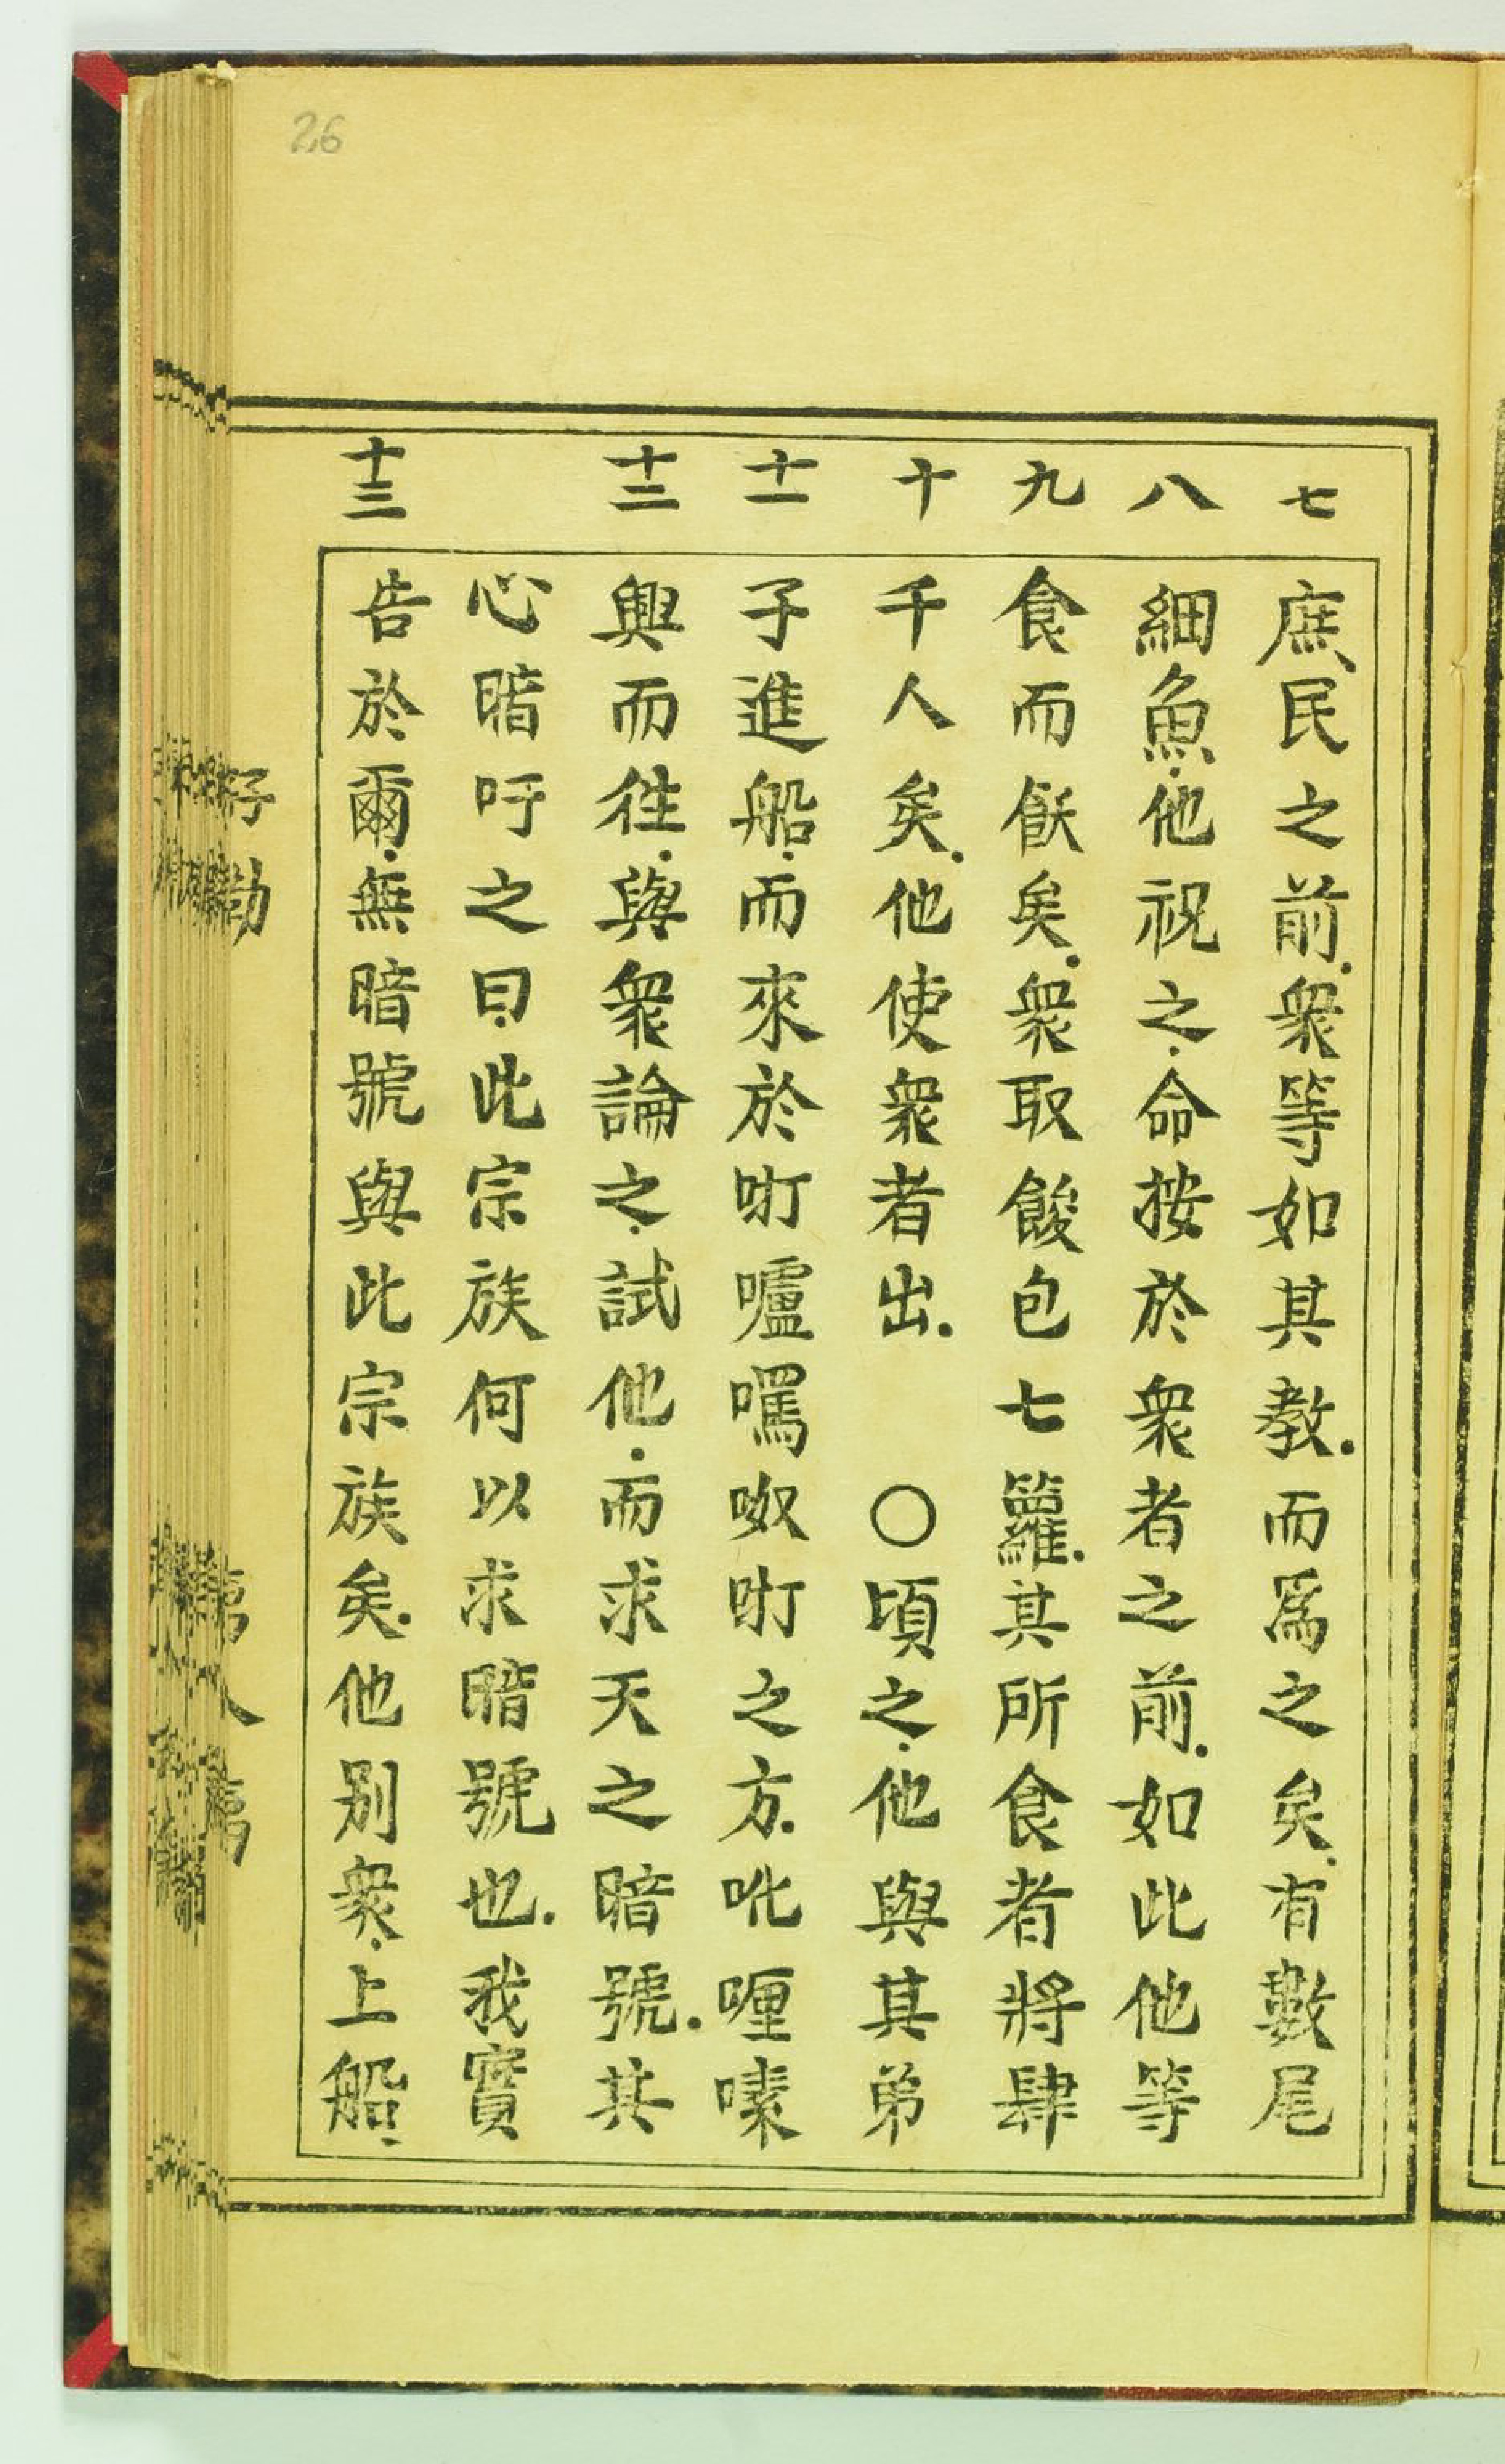 26
七 八 九 十 十一 十二 十三
庶民之前.衆等如其教.而爲之矣.有數尾
細魚.他祝之.命按於衆者之前.如此他等
食而飫矣.衆取餕包七籮.其所食者將肆
千人矣.他使衆者出.　○頃之.他與其弟
子進船.而來於𠵇嚧㗎呶𠵇之方.吪喱嗉
興而徃.與衆論之.試他.而求天之暗號.其
心暗吁之曰.此宗族何以求暗號也.我實
告於爾.無暗號與此宗族矣.他别衆.上船.